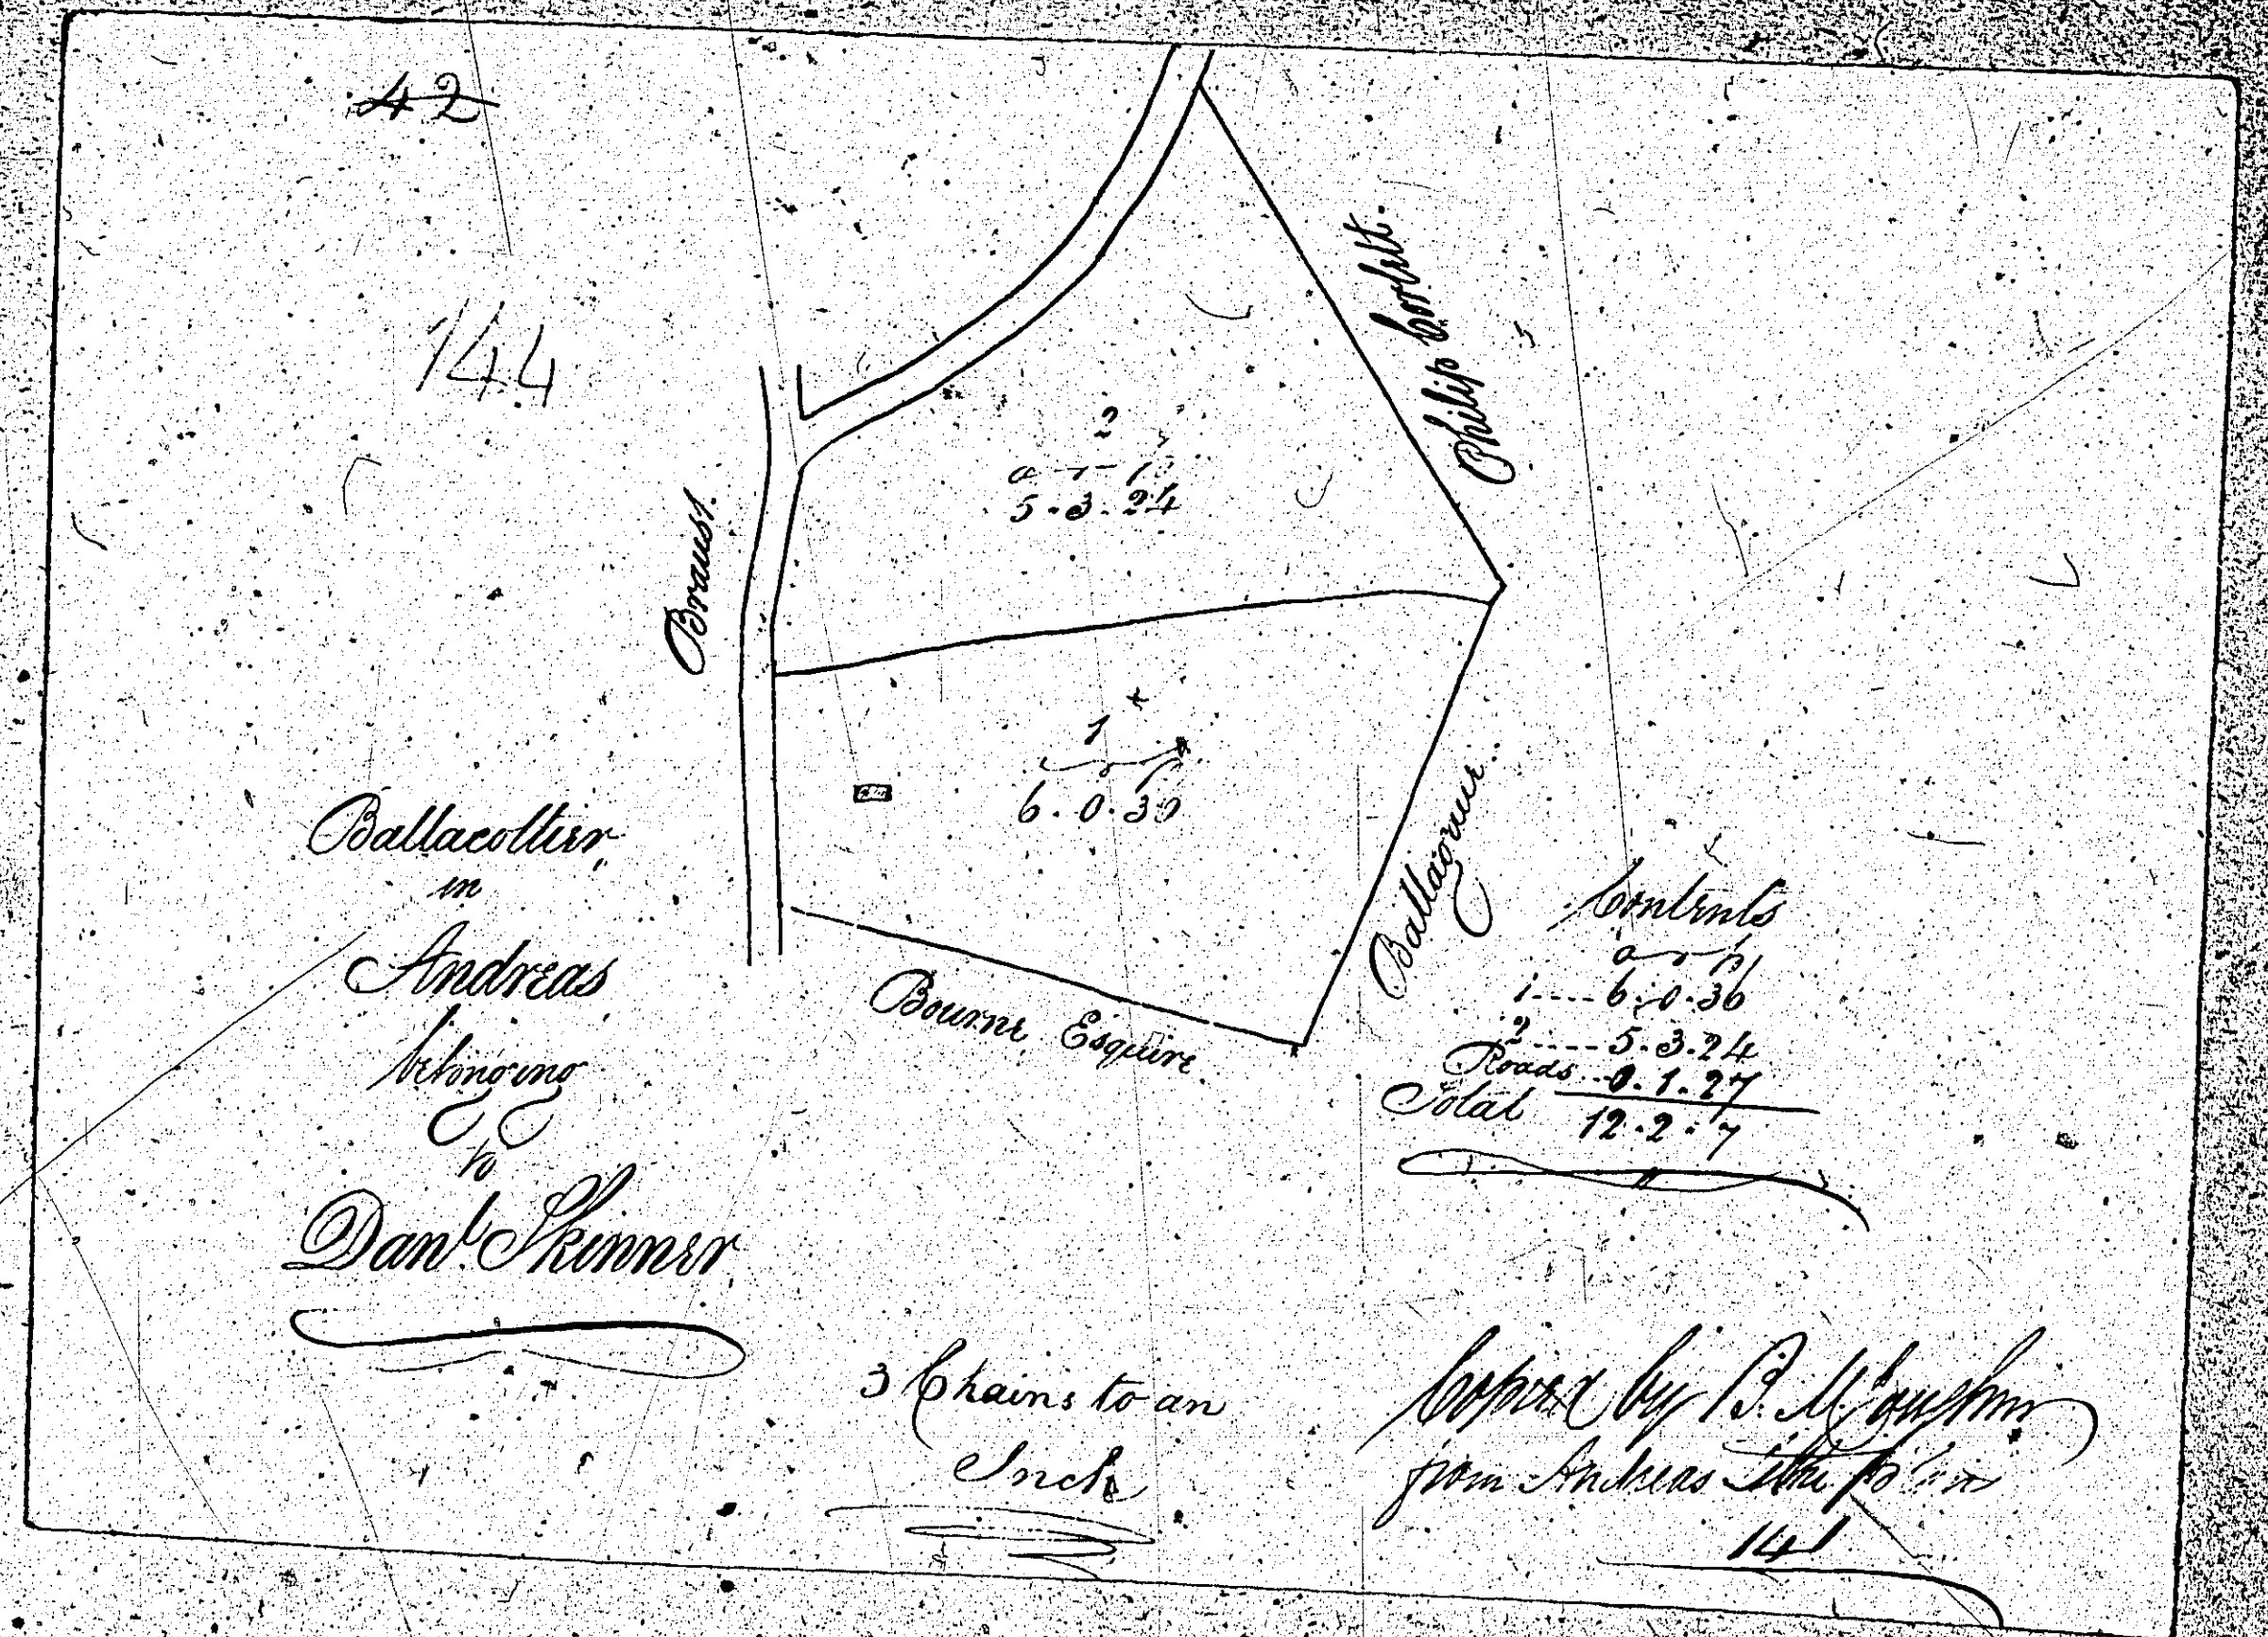 42
144
Philip Corlett.
2
a r p
5 . 3 . 24
Braust.
1 +
a r p
6 . 0 . 36
Ballacottier
in
Andreas
belonging
to
Danl. Skinner
Bourne Esquire
Ballagonue.
Contents
a r p
1 .... 6 . 0 . 36
2 .... 5 . 3 . 24
Roads .. 0 . 1 . 27
Total 12 . 2 . 7
3 Chains to an
Inch
Copied by B.
from Andreas Tithe
141